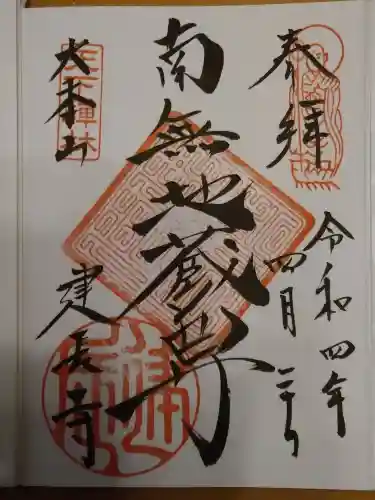 奉拝
令和四年
四月二十日
南無地蔵尊
天下禅林
大本山
建長寺